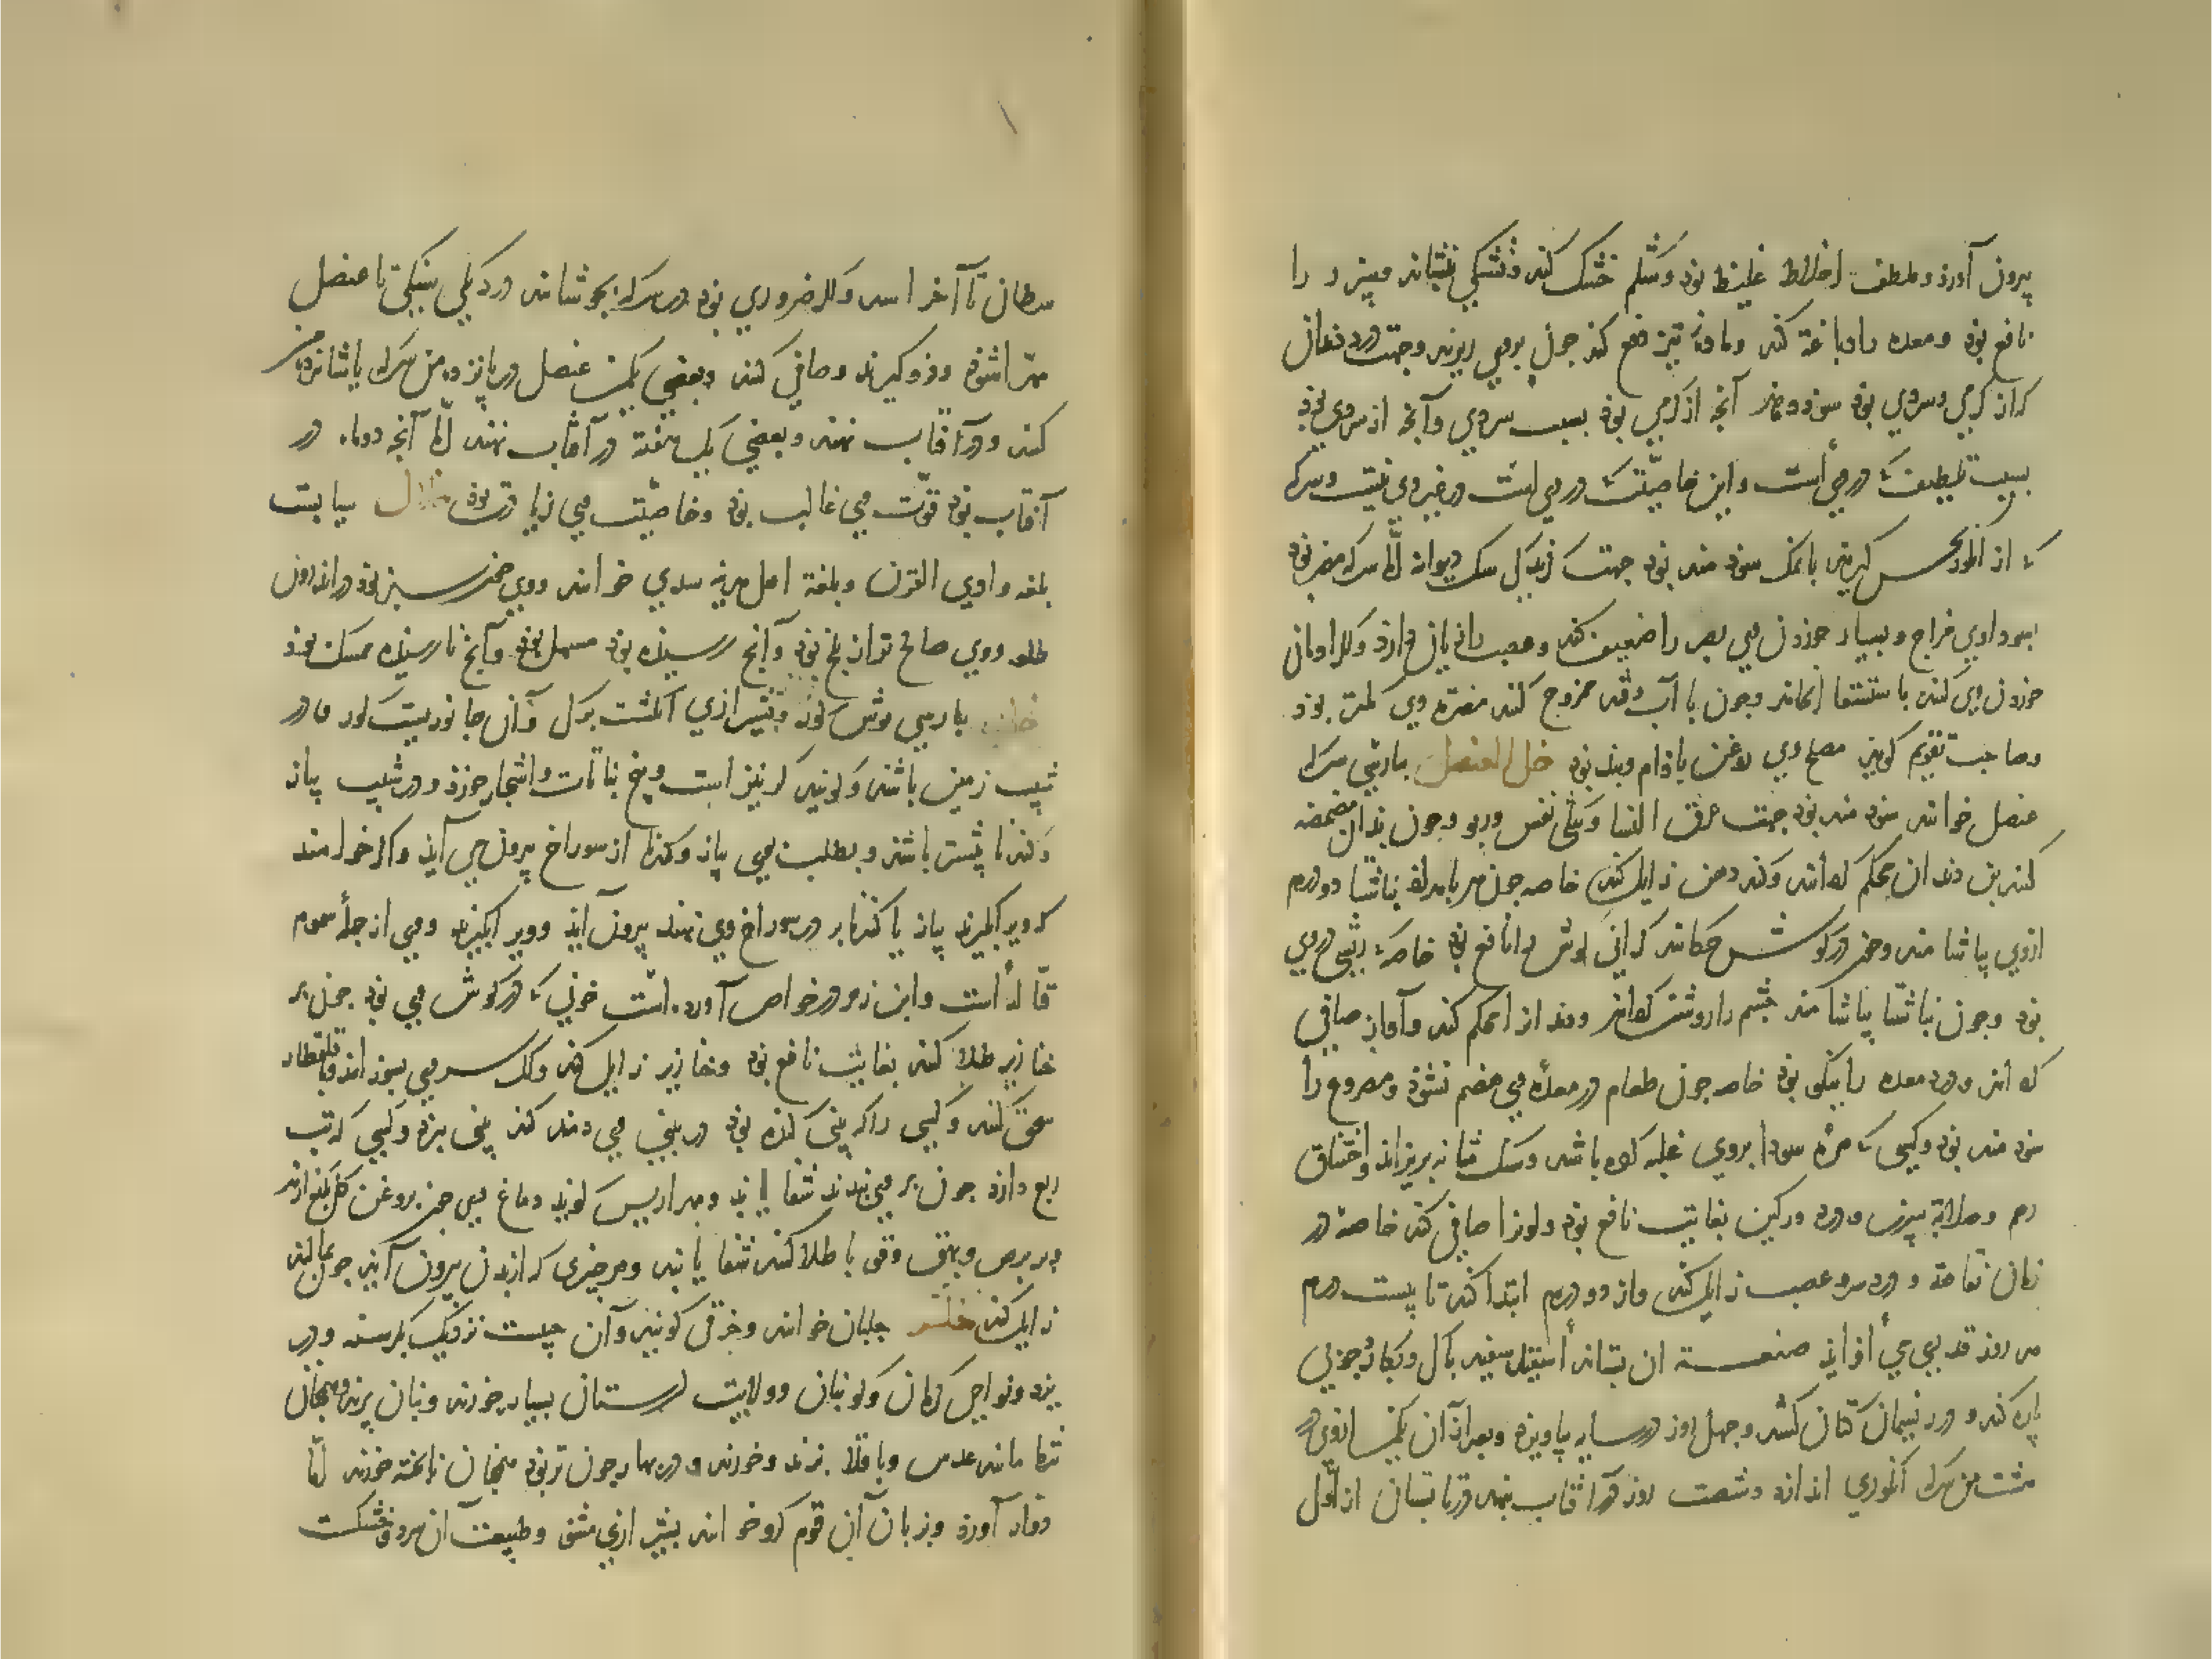 بیرون آورد و ملطف اخلاط غلیظ بود و شکم خشک کند و تشنکی بنشاند و سپرز را
نافع بود و معده را دباغة کند و مادهٔ تیز دفع کند چون بروی ریزند و جهت درد دندان
که از کرمی و سردی بود سود دهد آنچه از کرمی بود بسبب سردی و آنچه از سردی بود
بسبب تلطیف که در وی است و این خاصیّت که در وی است در غیر وی نیست و سرکه
که از انکور کیرند با نمک سود مند بود جهت کزیدکی سک دیوانه امّا سرکه مضر بود
بسوداوی مزاج و بسیار خوردن وی بصر را ضعیف کند و عصب را زیان دارد و اکر ادمان
خوردن وی کنند باستسقا انجامد و چون با آب و قند ممزوج کنند مضرت وی کمتر بود
و صاحب تقویم کوید مصلح وی روغن بادام و قند بود خل العنصل بپارسی سرکه
عنصل خوانند سود مند بود جهت عرق النسا و تنکی نفس و ربو و چون بدان مضمضه
کنند بن دندان محکم کرداند و کند دهن زایل کند خاصه چون هر بامداد ناشتا دو درم
ازوی بیاشامند و چون در کوش چکانند کرانی کوش را نافع بود خاصه که ریشی در وی
بود و چون ناشتا بیاشامند چشم را روشن کرداند و دندان را محکم کند و آواز صافی
کرداند و درد معده را نیکو بود خاصه چون طعام در معدهٔ وی هضم نشود و مصروع را
سود مند بود و کسی که مرّه سودا بروی غلبه کرده باشد و سنک مثانه بریزاند و اختناق
رحم و صلابة سپرز و درد ورکین بغایت نافع بود و لون را صافی کند خاصه در
زمان نقاهة و درد سر و عصب زایل کند و از دو درم ابتدا کند تا بیست درم
هر روز قدری می افزاید صنعة آن بستاند اسقیل سفید پاک و بکارد چوبین
پاره کند و در ریسمان کتان کشد و چهل روز در سایه بیاویزد و بعد از آن یکمن ازوی در
هشت من سرکه انکوری اندازد و شصت روز در آفتاب نهد در تابستان از اوّل
سرطان تا آخر اسد و اکر ضروری بود در سرکه بجوشانند در دیکی سنکی تا عنصل
مهرّا شود و فرو کیرند و صافی کنند و بعضی یکمن عنصل در پانزده من سرکه یا شانزده من
کنند و در آفتاب نهند و بعضی یک هفته در آفتاب نهند امّا آنچه دو ماه در
آفتاب بود قوّت وی غالب بود و خاصیّت وی زیادت بود خلال سیابست
بلغه وادی القری و بلغة اهل مدینه سدی خوانند و وی چیزی سبز بود در اندرون
طلع و وی صالح تر از بلح بود و آنچ رسیده بود مسهل بود و آنچ نارسیده ممسک بود
خلد بپارسی موش کور و بشیرازی انکشت برک و آن جانوریست کور مادر
شیب زمین باشد و کویند کر نیز است و بیخ نباتات و اشجار خورد و در شیب پیاز
و کندنا بیشتر باشد و بطلب بوی پیاز و کندنا از سوراخ بیرون می آید و اکر خواهند
که ویرا بکیرند پیاز یا کندنا بر در سوراخ وی نهند بیرون آید و ویرا بکیرند و وی از جملهٔ سموم
قتّاله است و ابن زهر در خواص آورده است خونی که در کوش وی بود چون بر
خنازیر طلا کنند بغایت نافع بود و خنازیر زایل کند و اکر سر وی بسوزانند و با قلقطار
سحق کنند و کسی را که بینی کنده بود در بینی وی دمند کند بینی ببرد و کسی که تب
ربع دارد چون بر وی بندند شفا یابد و مهراریس کوید دماغ وی چون بروغن کل بکدازند
و بر برص و بهق و قوبا طلا کنند شفا یابند و هر چیزی که از بدن بیرون آید چون بمالند
زایل کند خلّر جلبان خوانند و خرفی کویند و آن حبیست نزدیک بکرسنه و در
یزد و نواحی کرمان و کوبنان و ولایت لرستان بسیار خورند و نان پزند و همچنان
تنها مانند عدس و باقلا بپزند و خورند و در بهار چون تر بود همچنان ناپخته خورند امّا
دوار آورد و بزبان آن قوم کرو خوانند بشیرازی مشنو و طبیعت آن سرد و خشکست